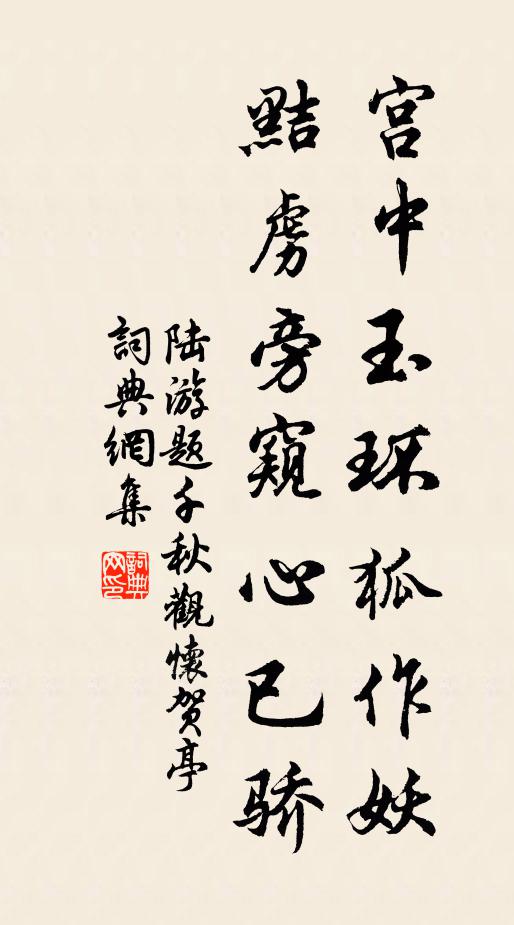 宫中玉环狐作妖
黠虏旁窥心已骄
陆游题千秋觀懷贺亭
詞典網集
詞典
网印